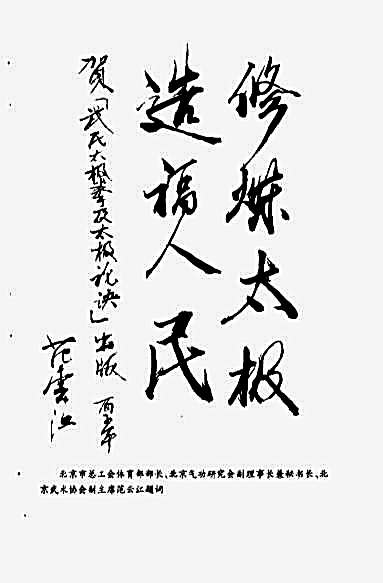 修炼太极
造福人民
賀「武氏太极拳及太极诀」出版 丙子年
范雲江
北京市总工会体育部部长、北京气功研究会副理事长兼秘书长、北
京武术协会副主席范云江题词